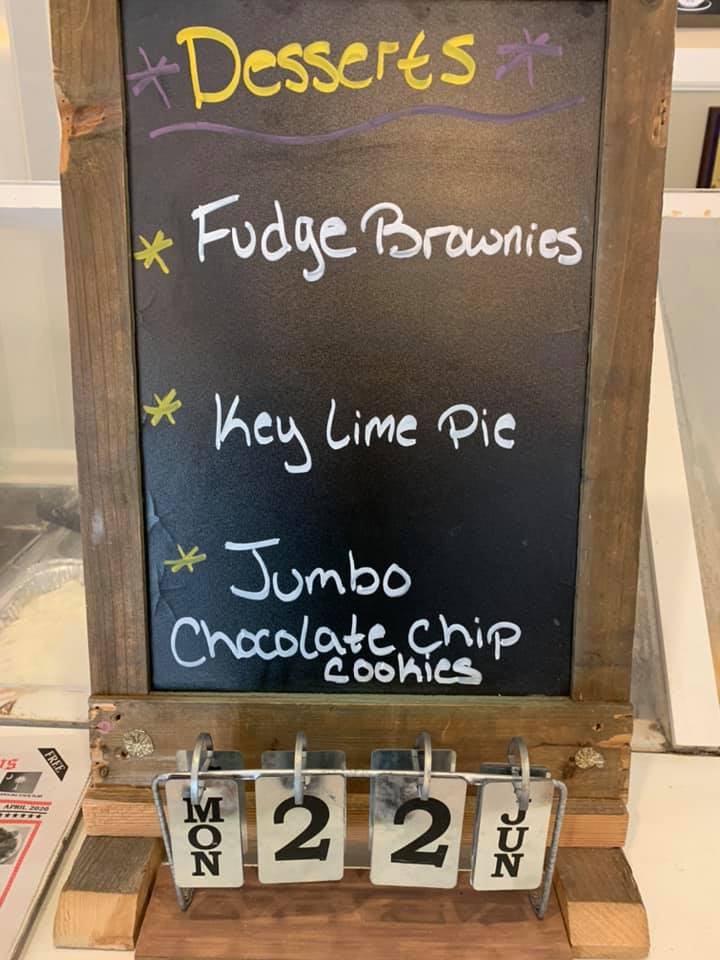 * Desserts *
* Fudge Brownies
* Key Lime Pie
* Jumbo
Chocolate Chip
cookies
FREE
APRIL 2020
MON 22 JUN